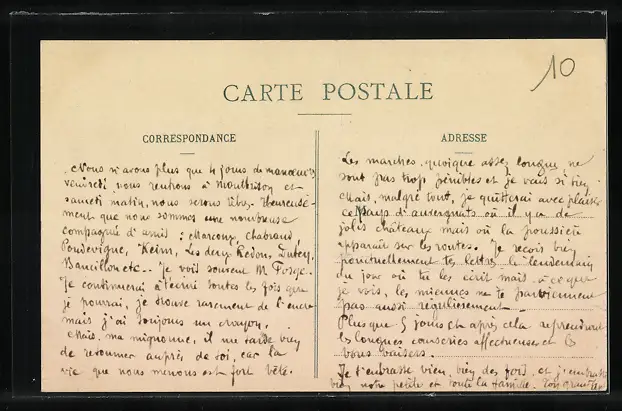 10
CARTE POSTALE
CORRESPONDANCE
Nous n'avons plus que 4 jours de manœuvres
vendredi nous rentrons à Montbrison et
samedi matin, nous serons libres. Heureuse-
ment que nous sommes une nombreuse
compagnie d'amis : Marcoux, Chabrand
Poudevigne, Keim, Les deux Redon, Dubey,
Bancillon etc.. Je vois souvent M. Forge.
Je continuerai à t'écrire toutes les fois que
je pourrai, je trouve rarement de l'encre
mais j'ai toujours un crayon.
Mais, ma mignonne, il me tarde bien
de retourner auprès de toi, car la
vie que nous menons est fort bête.
ADRESSE
Les marches, quoique assez longues ne
sont pas trop pénibles et je vais si bien
Mais, malgré tout, je quitterai avec plaisir
ce Pays d'auvergnats où il y a de
jolis châteaux mais où la poussière
apparaît sur les routes. Je reçois bien
ponctuellement tes lettres le lendemain
du jour où tu les écrit mais à ce que
je vois, les miennes ne te parviennent
pas aussi régulièrement.
Plus que 5 jours et après cela reprendront
les longues causeries affectueuses et les
bons baisers.
Je t'embrasse bien, bien des fois, et j'embrasse
bien notre petite et toute la famille. Ton grand